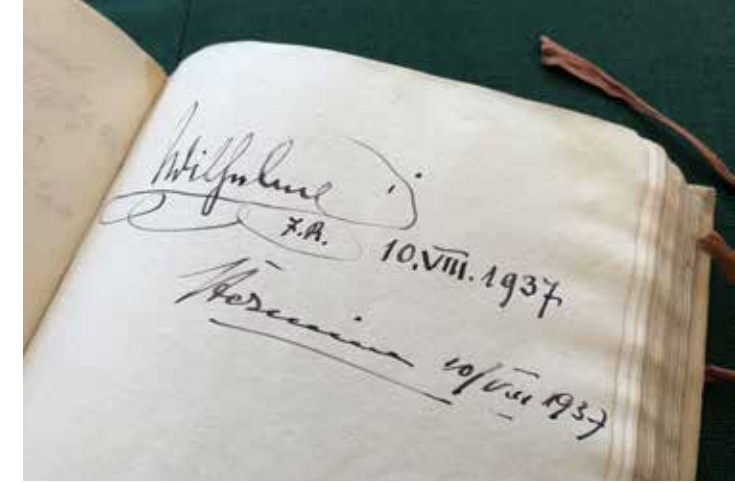 Wilhelm
I.R. 10.VIII.1937
Hermine 10/VIII 1937